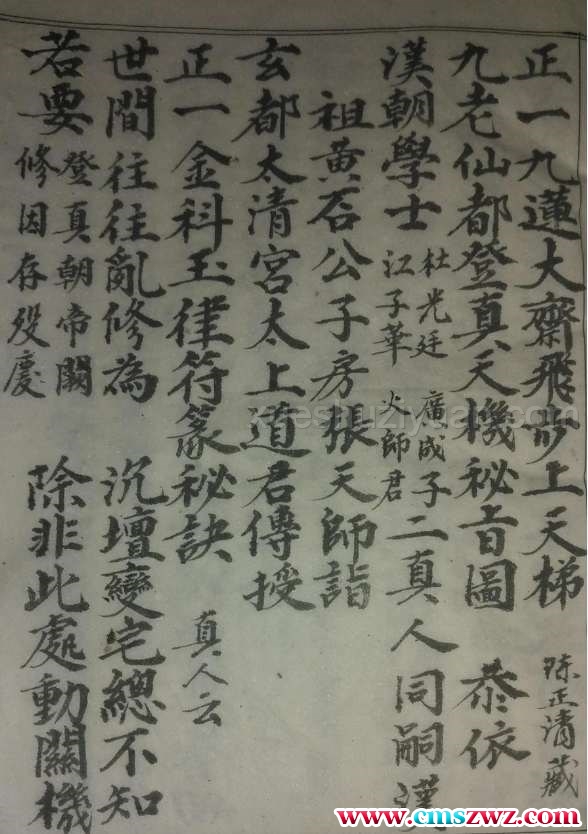 正一九蓮大齋飛步上天梯 陈正清藏
九老仙都登真天機秘旨圖 恭依
漢朝學士 杜光廷 江子華 廣成子 火師君 二真人同嗣漢
祖黃石公子房張天師詣
玄都太清宮太上道君傳授
正一金科玉律符篆秘訣 真人云
世間往往亂修為 沉壇變宅總不知
若要 登真朝帝闕 修因存殁慶 除非此處動關機
www.cmszwz.com